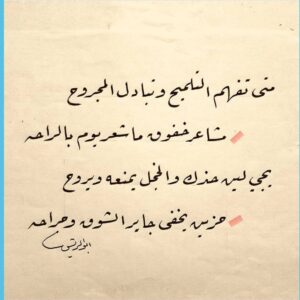 متى تفهم التلميح وتبادل المجروح
مشاعر خفوق ما شعر يوم بالراحه
يجي لين حدك والخجل يمنعه ويروح
حزين يخفى جاير الشوق وجراحه